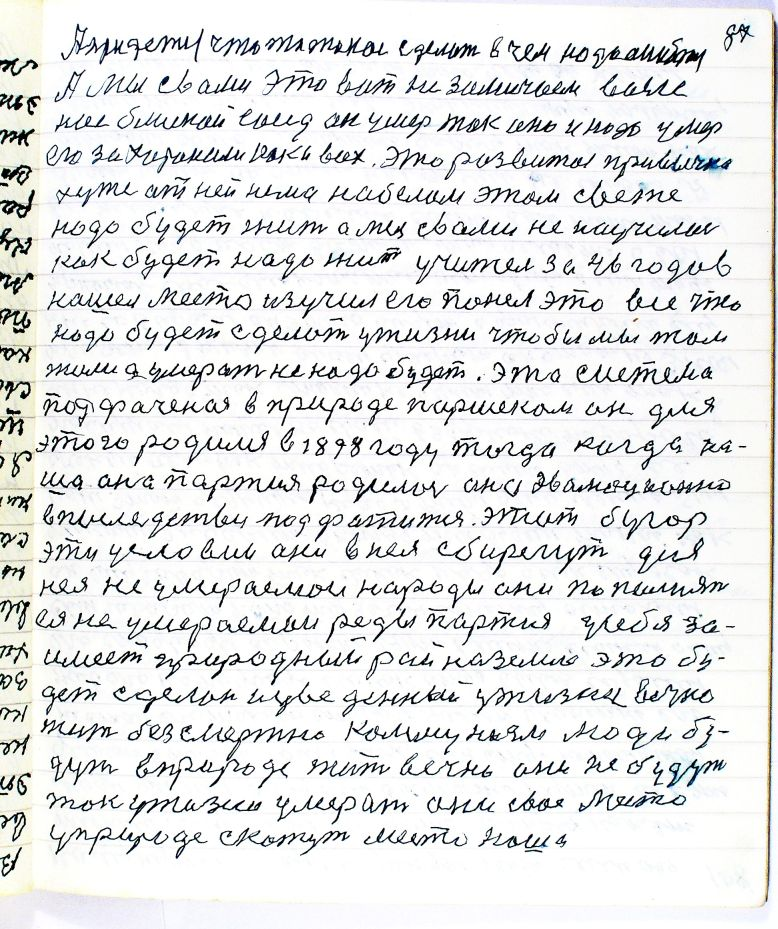 87
что то такое сделат в чем надо
А мы свами это вот не замичаем
нас близкой сосед он умер так оно и надо умер
его захоронили как и всех. это развитое привычка
хуже от ней нема на белом этом свете
надо будет жит а мы свами не научилис
как будет надо жит учител за 46 годов
нашел место изучил его понел это все что
надо будет сделат ужизни чтобы мы там
жили а умерат не надо будет. эта система
в природе паршеком он для
этого родился в 1898 году тогда когда на-
ша она партия родилас она эвалюционно
впоследствии этот бугор
эти условии они в нея сберегут для
нея не умераемои народы они пополнят
ся не умераемои реды партия у себя за-
имеет природный рай на земле это бу-
дет сделан и введенный ужизни вечно
жит безсмертно комунизм люди бу-
дут вприроде жит вечно они не будут
так ужизни умерат они свое место
уприроде скажут место наша